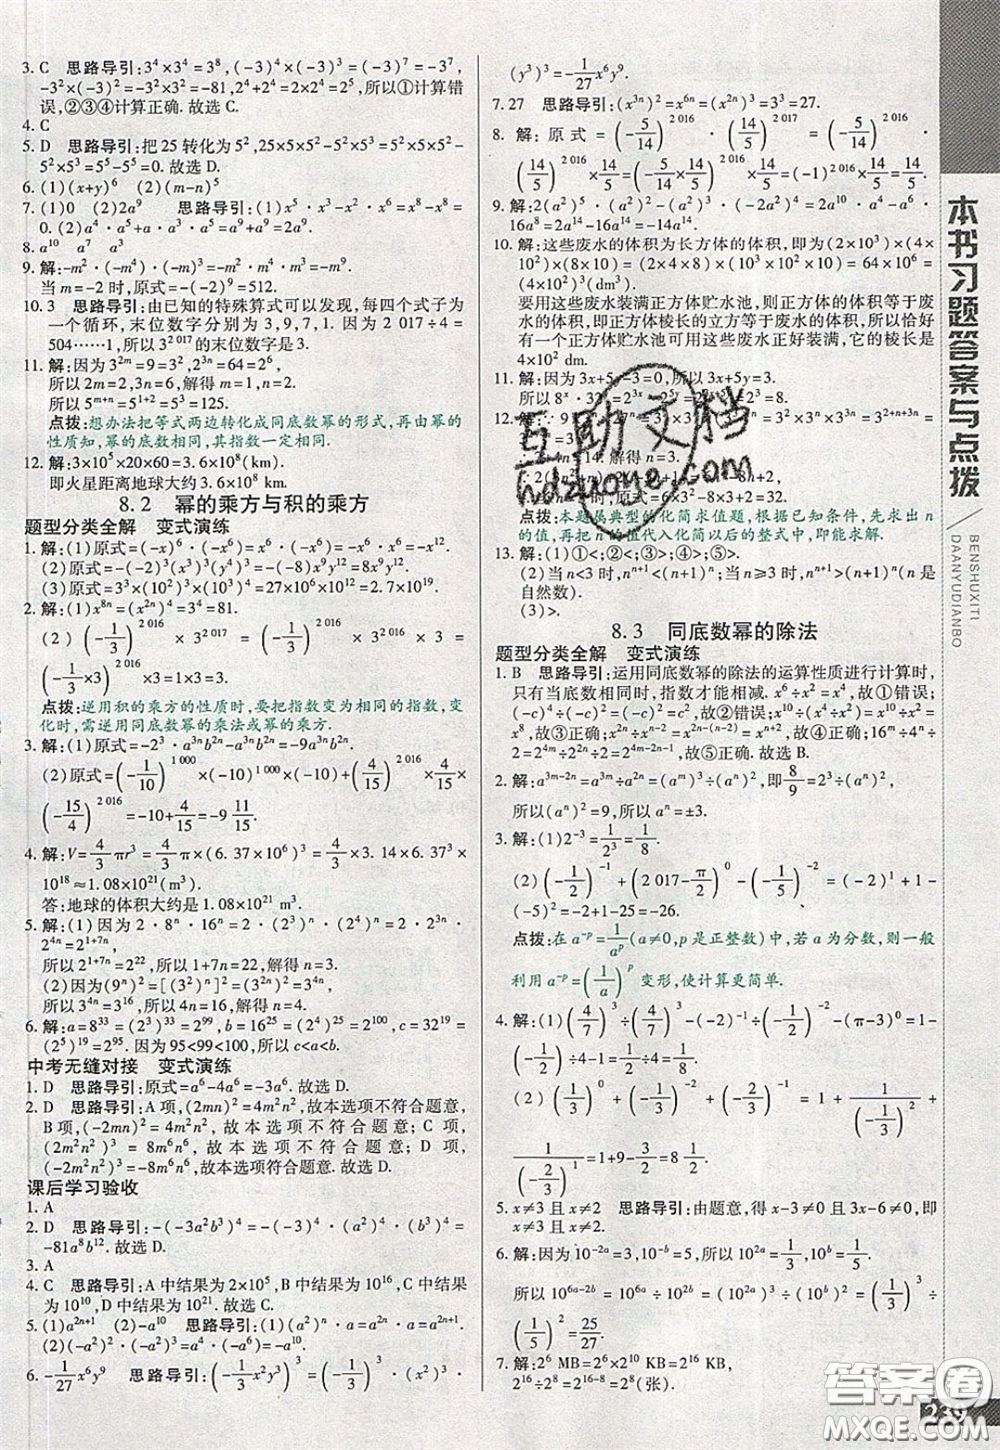 3. C　思路导引:3⁴×3⁴=3⁸,(-3)⁴×(-3)³=(-3)⁷=-3⁷,
-3²×(-3)²=-3⁴=-81,2⁴+2⁴=2×2⁴=2⁵,所以①计算错
误,②③④计算正确.故选C.
4. C
5. D　思路导引:把25转化为5²,25×5×5²-5⁵=5²×5×5²-
5⁵=5⁵-5⁵=0.故选D.
6. (1)(x+y)⁶　(2)(m-n)⁵
7. (1)0　(2)2a⁹　思路导引:(1)x⁵·x³-x²·x⁶=x⁸-x⁸=
0.(2)a⁴·a⁵+a·a³·a⁵=a⁹+a⁹=2a⁹.
8. a¹⁰　a⁷　a³
9. 解:-m²·(-m)⁴·(-m)³=m²·m⁴·m³=m⁹.
当m=-2时,原式=-(-2)⁹=512.
10. 3　思路导引:由已知的特殊算式可以发现,每四个式子为
一个循环,末位数字分别为3,9,7,1.因为2 017÷4=
504……1,所以3²⁰¹⁷的末位数字是3.
11. 解:因为3²ᵐ=9,2ⁿ⁺¹=64=2⁶,
所以2m=2,n+1=6,解得m=1,n=5.
所以5ᵐ⁺ⁿ=5¹⁺²=5³=125.
点拨:想办法把等式两边转化成同底数幂的形式,再由幂的
性质知,幂的底数相同,其指数一定相同.
12. 解:3×10⁵×20×60=3.6×10⁸(km).
即火星距离地球大约3.6×10⁸ km.
8.2　幂的乘方与积的乘方
题型分类全解　变式演练
1. 解:(1)原式=(-x)⁶·(-x⁶)=x⁶·(-x⁶)=-x¹².
(2)原式=(-2)³(x³)³(y²)³=(-8)x⁹y⁶=-8x⁹y⁶.
(3)原式=81x¹²-64x¹²+x¹²=18x¹².
2. 解:(1)x⁸ⁿ=(x²ⁿ)⁴=3⁴=81.
(2)(-1/3)²⁰¹⁶×3²⁰¹⁷=(-1/3)²⁰¹⁶×3²⁰¹⁶×3=
(-1/3×3)²⁰¹⁶×3=1×3=3.
点拨:逆用积的乘方的性质时,要把指数变为相同的指数,变
化时,需逆用同底数幂的乘法或幂的乘方.
3. 解:(1)原式=-2³·a³ⁿb²ⁿ-a³ⁿb²ⁿ=-9a³ⁿb²ⁿ.
(2)原式=(-1/10)¹⁰⁰⁰×(-10)¹⁰⁰⁰×(-10)+(4/15)²⁰¹⁶×4/15×
(-15/4)²⁰¹⁶=-10+4/15=-9 11/15.
4. 解:V=4/3πr³=4/3×π×(6.37×10⁶)³≈4/3×3.14×6.37³×
10¹⁸≈1.08×10²¹(m³).
答:地球的体积大约是1.08×10²¹m³.
5. 解:(1)因为2·8ⁿ·16ⁿ=2·(2³)ⁿ·(2⁴)ⁿ=2·2³ⁿ·
2⁴ⁿ=2¹⁺⁷ⁿ,
所以2¹⁺⁷ⁿ=2²²,所以1+7n=22,解得n=3.
(2)因为(9ⁿ)²=[(3²)ⁿ]²=3⁴ⁿ,
所以3⁴ⁿ=3¹⁶,所以4n=16,解得n=4.
6. 解:a=8³³=(2³)³³=2⁹⁹,b=16²⁵=(2⁴)²⁵=2¹⁰⁰,c=32¹⁹=
(2⁵)¹⁹=2⁹⁵.因为95<99<100,所以c<a<b.
中考无缝对接　变式演练
1. D　思路导引:原式=a⁶-4a⁶=-3a⁶.故选D.
2. D　思路导引:A项,(2mn)²=4m²n²,故本选项不符合题意,
B项,(-2mn)²=4m²n²,故本选项不符合题意;C项,
(2m²n)²=4m⁴n²,故本选项不符合题意;D项,
(-2m²n)³=-8m⁶n³,故本选项符合题意.故选D.
课后学习验收
1. A
2. D　思路导引:-(-3a²b³)⁴=-(-3)⁴(a²)⁴(b³)⁴=
-81a⁸b¹².故选D.
3. A
4. C　思路导引:A中结果为2×10⁵,B中结果为10¹⁶,C中结果
为10¹⁰,D中结果为10²¹.故选C.
5. (1)a²ⁿ⁺¹　(2)-a¹⁰　思路导引:(1)(a²)ⁿ·a=a²ⁿ·a=a²ⁿ⁺¹.
(2)(-a²)²·(-a²)³=a⁴·(-a⁶)=-a¹⁰.
6. -1/27x⁶y⁹　思路导引:(-1/3x²y³)³=(-1/3)³·(x²)³·
(y³)³=-1/27x⁶y⁹.
7. 27　思路导引:(x³ⁿ)²=x⁶ⁿ=(x²ⁿ)³=3³=27.
8. 解:原式=(-5/14)²⁰¹⁶·(14/5)²⁰¹⁷=(-5/14)²⁰¹⁶·
(14/5)²⁰¹⁶×14/5=(-5/14×14/5)²⁰¹⁶×14/5=(-1)²⁰¹⁶×14/5=14/5.
9. 解:2(a²)⁵·(a²)²-(a²)⁴·(a²)³·a²=2a¹⁰·a⁴-a⁸·a⁶·
a²=2a¹⁴-16a¹⁴=-14a¹⁴.
10. 解:这些废水的体积为长方体的体积,即为(2×10³)×(4×
10²)×(8×10)=(2×4×8)×(10³×10²×10)=64×10⁶=
(4×10²)³(dm³).
要用这些废水装满正方体贮水池,则正方体的体积等于废
水的体积,即正方体棱长的立方等于废水的体积,所以恰好
有一个正方体贮水池可用这些废水正好装满,它的棱长是
4×10² dm.
11. 解:因为3x+5y-3=0,所以3x+5y=3.
所以8ˣ·32ʸ=2³ˣ
点拨:本题属典型的化简求值题,根据已知条件,先求出n
的值,再把n的值代入化简以后的整式中,即能求解.
13. 解:(1)①<;②<;③>;④>;⑤>.
(2)当n<3时,nⁿ⁺¹<(n+1)ⁿ;当n≥3时,nⁿ⁺¹>(n+1)ⁿ(n是
自然数).
(3)>.
8.3　同底数幂的除法
题型分类全解　变式演练
1. B　思路导引:运用同底数幂的除法的运算性质进行计算时,
只有当底数相同时,指数才能相减.x⁶÷x³=x³,故①错误;
(-c)⁴÷(-c)²=(-c)²=c²,故③错误;
x⁸,所以④正确;xⁿ÷xⁿ⁻²=xⁿ⁻⁽ⁿ⁻²⁾=x²,故②正确;16ᵐ÷4ⁿ
÷2=2⁴ᵐ÷2²ⁿ÷2=2⁴ᵐ⁻²ⁿ⁻¹,故⑤正确.故选B.
2. 解:a³ᵐ⁻²ⁿ=a³ᵐ÷a²ⁿ=(aᵐ)³÷(aⁿ)²,即8/9=2³÷(aⁿ)²,
所以(aⁿ)²=9,所以aⁿ=±3.
3. 解:(1)2⁻³=1/2³=1/8.
(2)(-1/2)⁻¹+(2 017-π/5)⁰-(-1/5)⁻²=(-2)¹+1-
(-5)²=-2+1-25=-26.
点拨:在a⁻ᵖ=1/aᵖ(a≠0,p是正整数)中,若a为分数,则一般
利用a⁻ᵖ=(1/a)ᵖ变形,使计算更简单.
4. 解:(1)(4/7)³÷(4/7)³-(-2)⁻¹-(π-3)⁰=1-
(-1/2)-1=1/2.
(2)(1/3)⁰+(1/3)⁻²-(2/3)⁻³ = 1+1/(-1/3)²+
1/(-2/3)³=1+9-3 3/8=8 1/2.
5. x≠3且x≠2　思路导引:由题意,得x-3≠0且3x-6≠0,即
x≠3且x≠2.
6. 解:因为10⁻²ᵃ=3,10⁻ᵇ=1/5,所以10²ᵃ=1/3,10ᵇ=5.
所以10⁶ᵃ⁻²ᵇ=10⁶ᵃ÷10²ᵇ=(10²ᵃ)³÷(10ᵇ)²=(1/3)³÷
7. 解:2⁶ MB=2⁶×2¹⁰ KB=2¹⁶ KB,
2¹⁶÷2⁸=2¹⁶⁻⁸=2⁸(张).
本书习题答案与点拨
BENSHUXITI
DAANYUDIANBO
互助文档
hdzuoye.com
答案圈
MXQE.COM